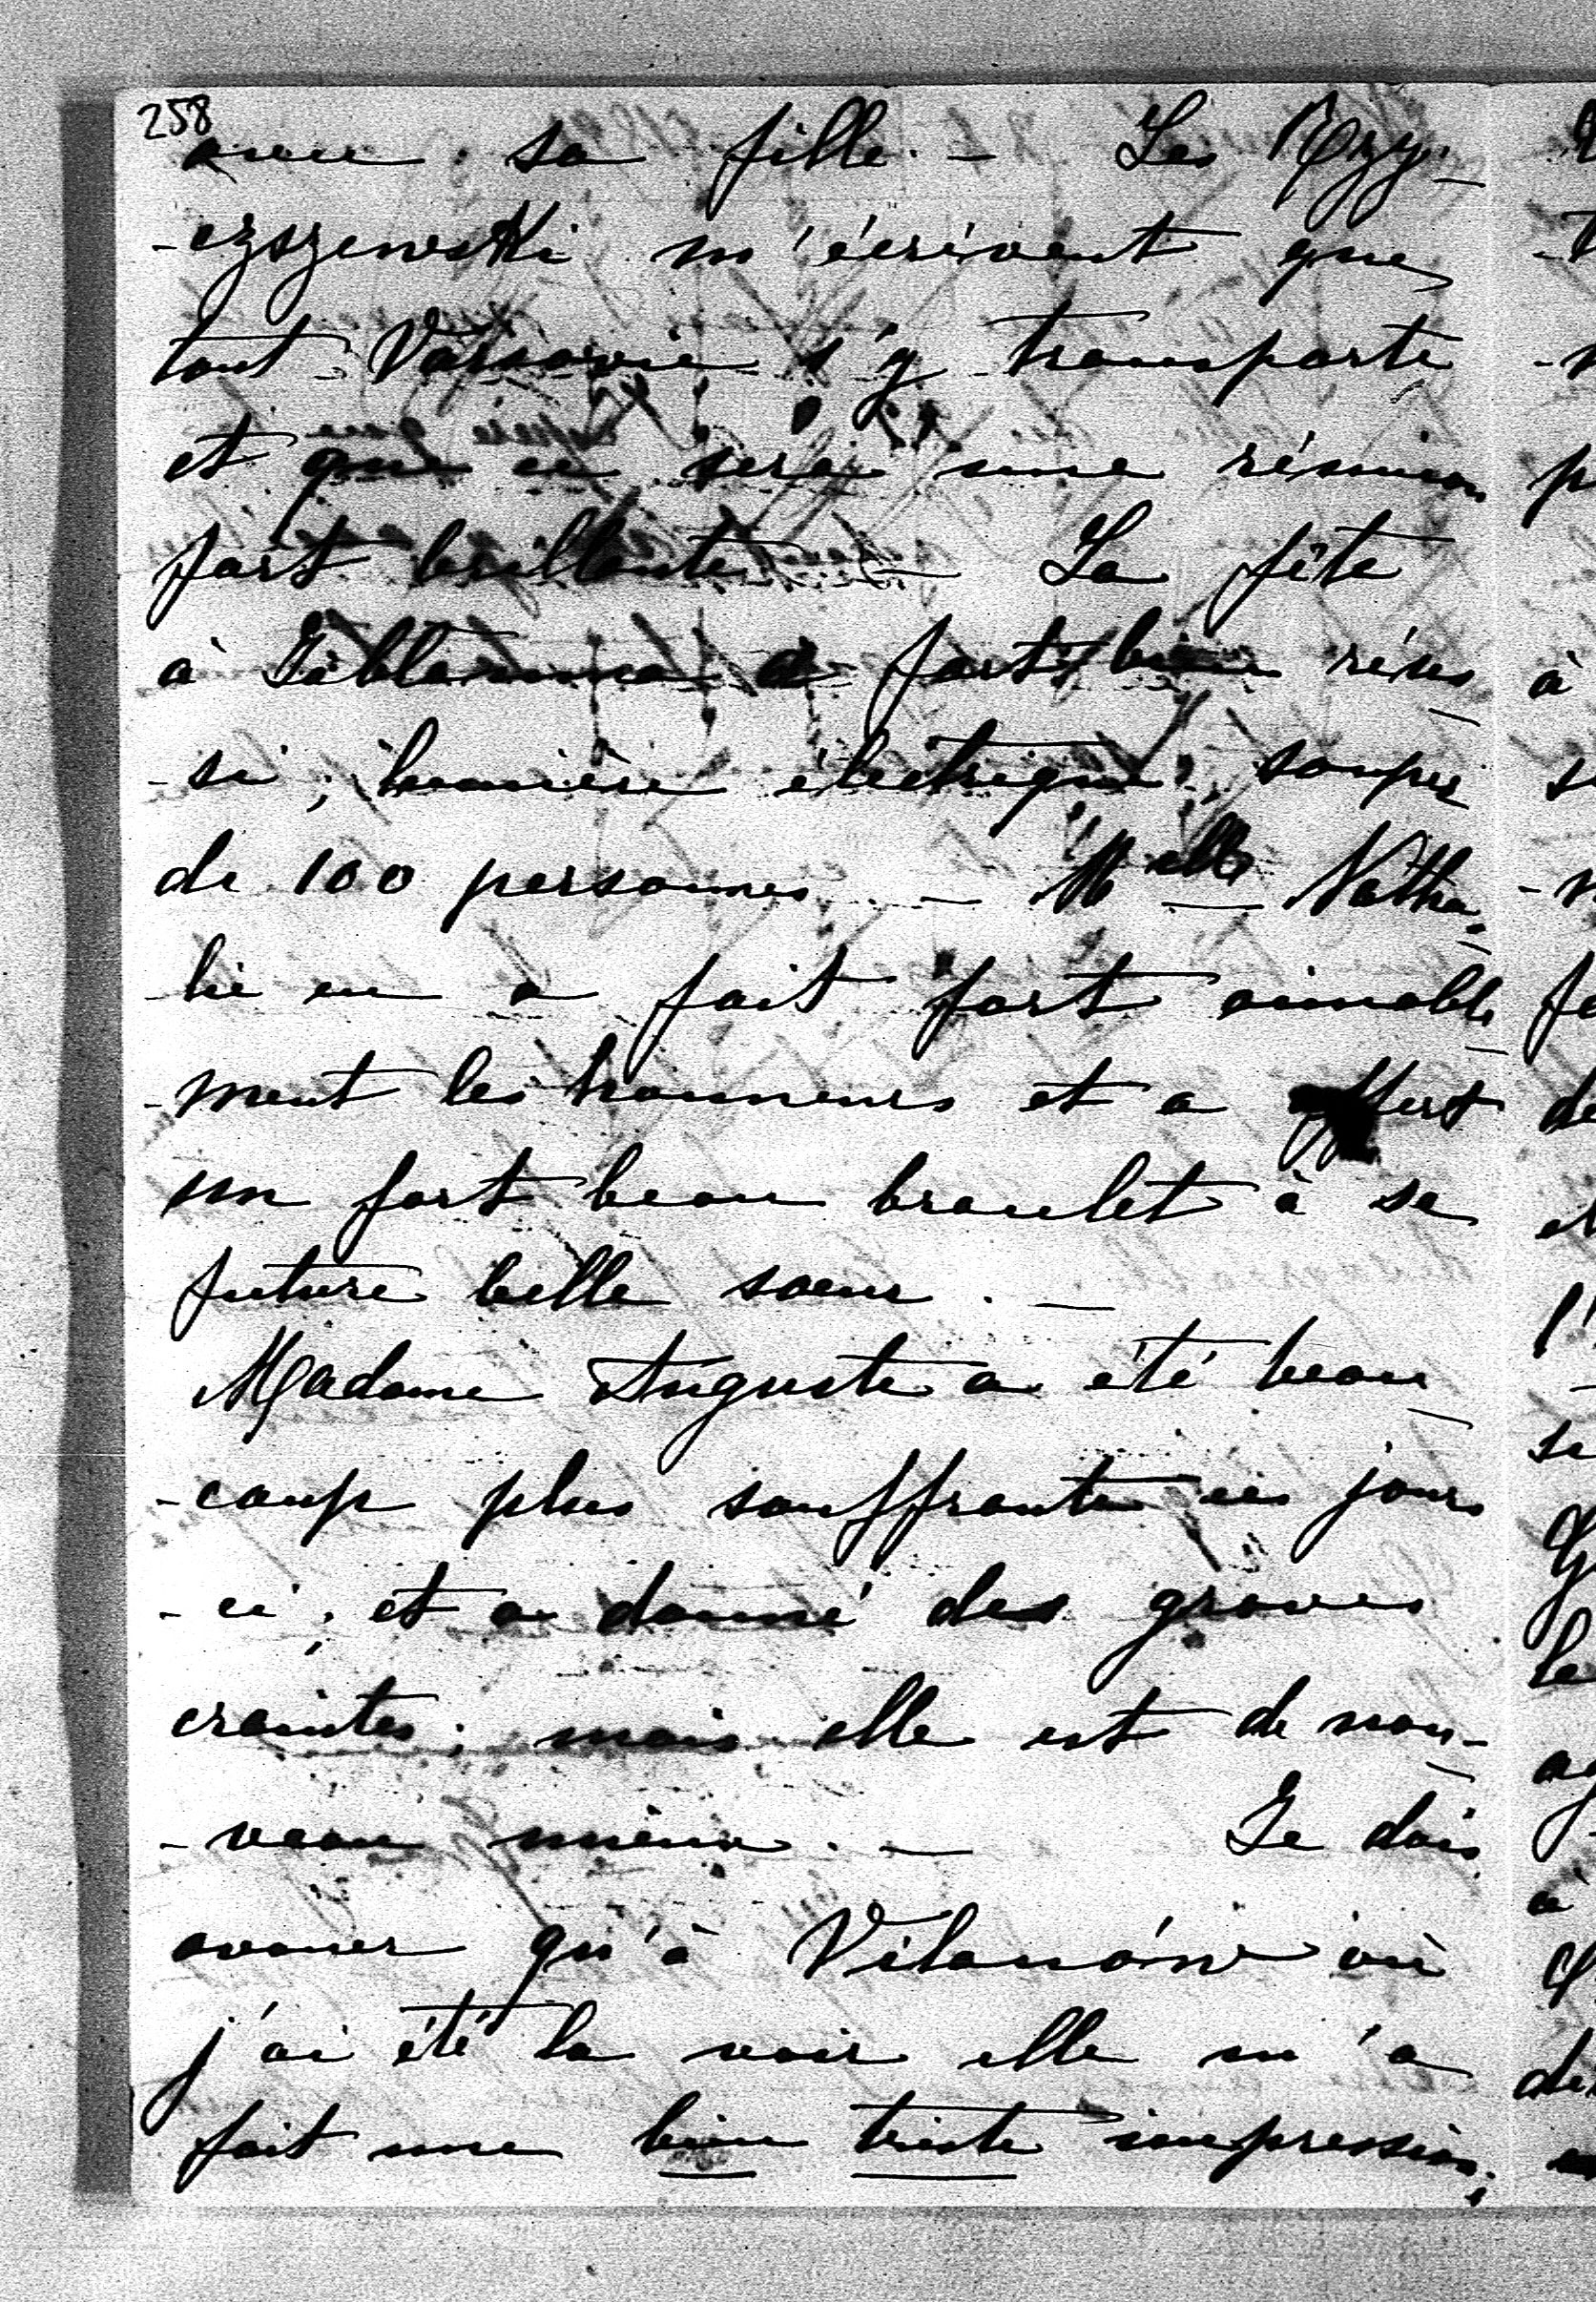 258
avec sa fille. — Les Rzy-
-czszewski m'écrivent que
tout Varsovie s'y transporte
et que ce sera une réunion
fort brillante — La fête
à Jablonna a fort bien réus-
-si ; lumière électrique, souper
de 100 personnes — Melle Natha-
-lie en a fait fort aimable-
-ment les honneurs et a offert
un fort beau bracelet à sa
future belle soeur. —
Madame Auguste a été beau-
-coup plus souffrante ces jours
-ci ; et a donné des graves
craintes ; mais elle est de nou-
-veau mieux. — Je dois
avouer qu'à Vilanów où
j'ai été la voir elle m'a
fait une bien triste impression ;